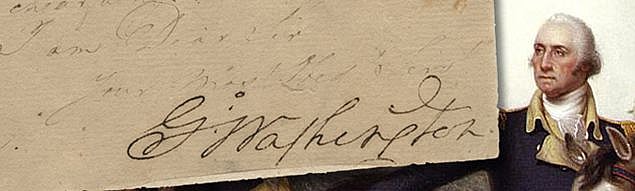 I am Dear Sir
Your Most Obed Serv
G Washington